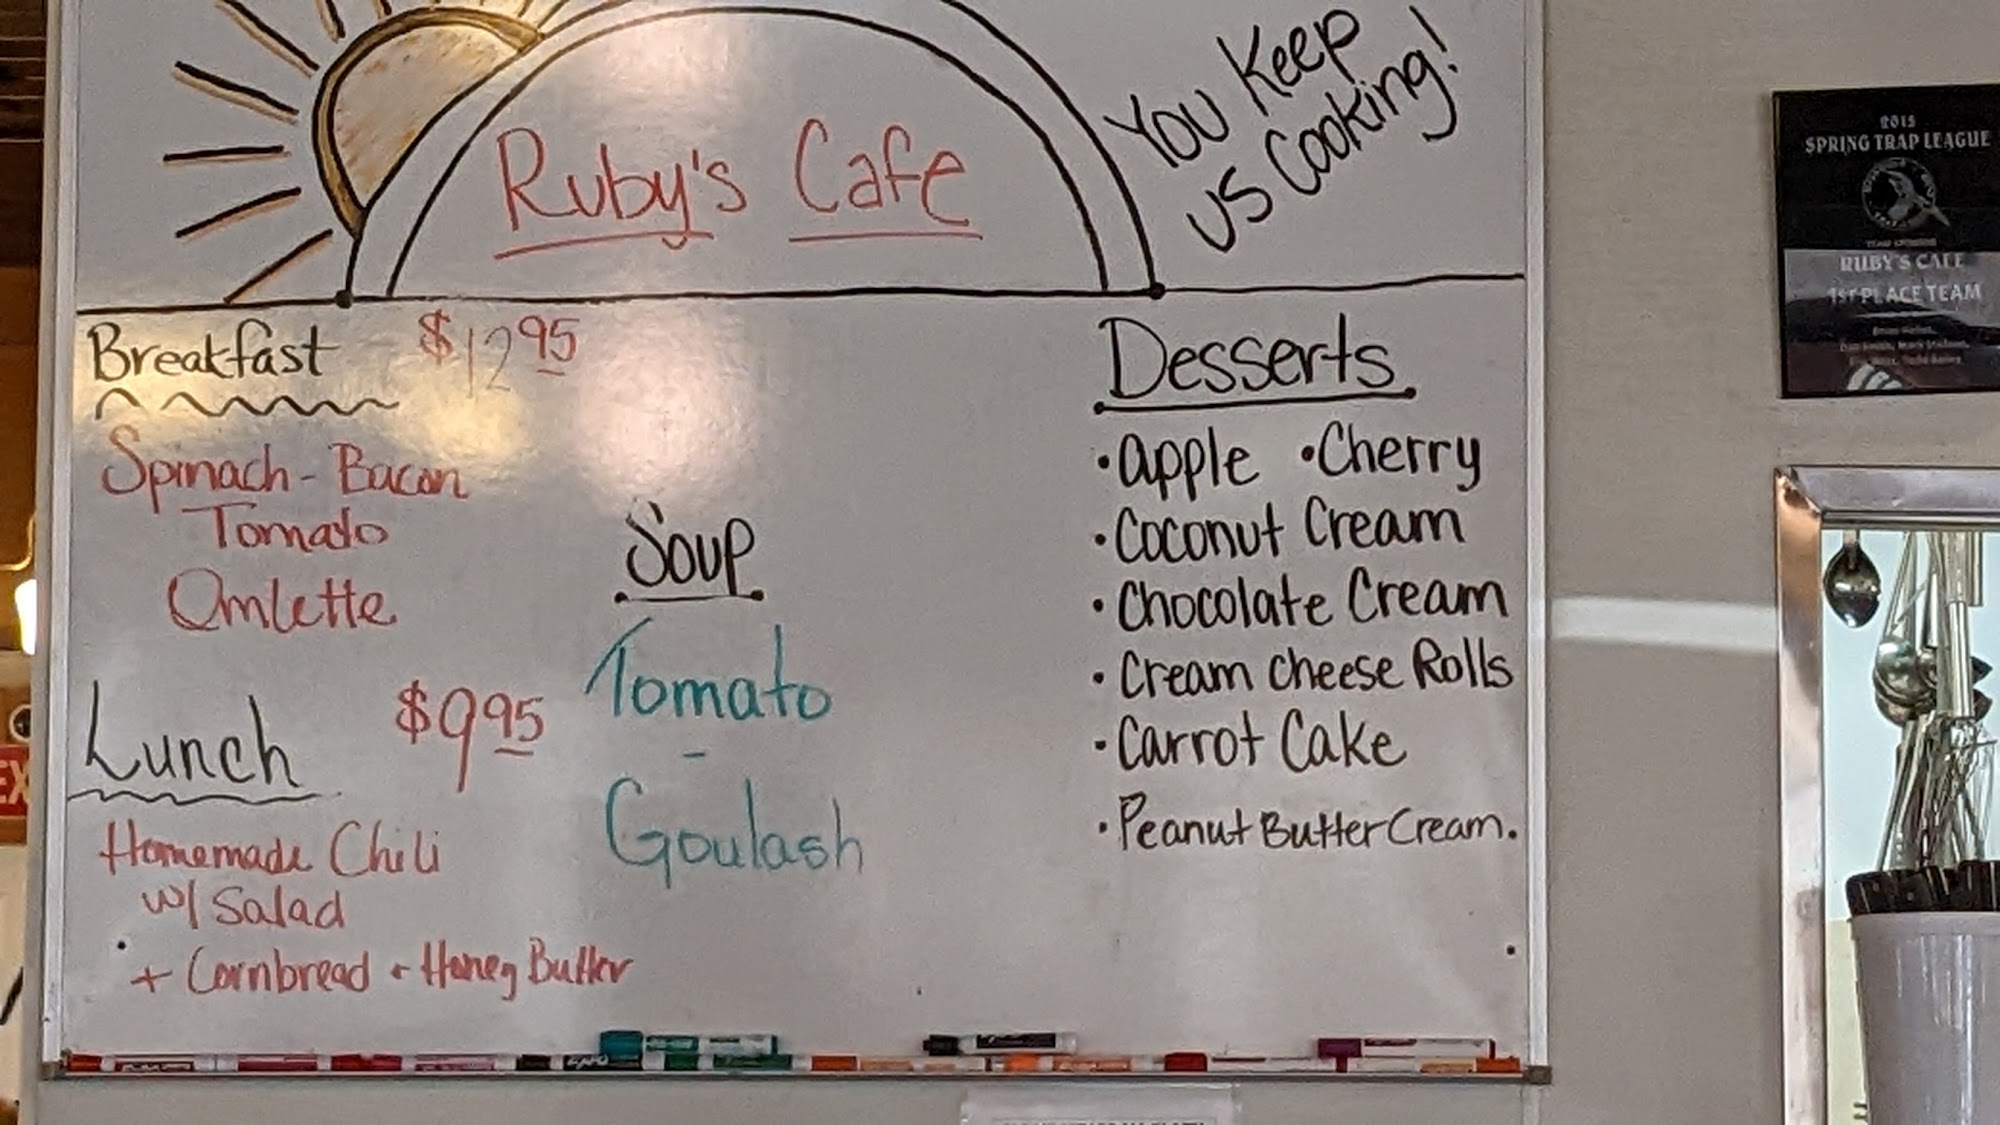 Ruby's Cafe
You Keep
us Cooking!
Breakfast $12.95
Spinach - Bacon
Tomato
Omlette
Lunch $9.95
Homemade Chili
w/ Salad
+ Cornbread + Honey Butter
Soup
Tomato
-
Goulash
Desserts
• Apple • Cherry
• Coconut Cream
• Chocolate Cream
• Cream Cheese Rolls
• Carrot Cake
• Peanut Butter Cream.
2015
SPRING TRAP LEAGUE
RUBY'S CAFE
1ST PLACE TEAM
EX
EXPO